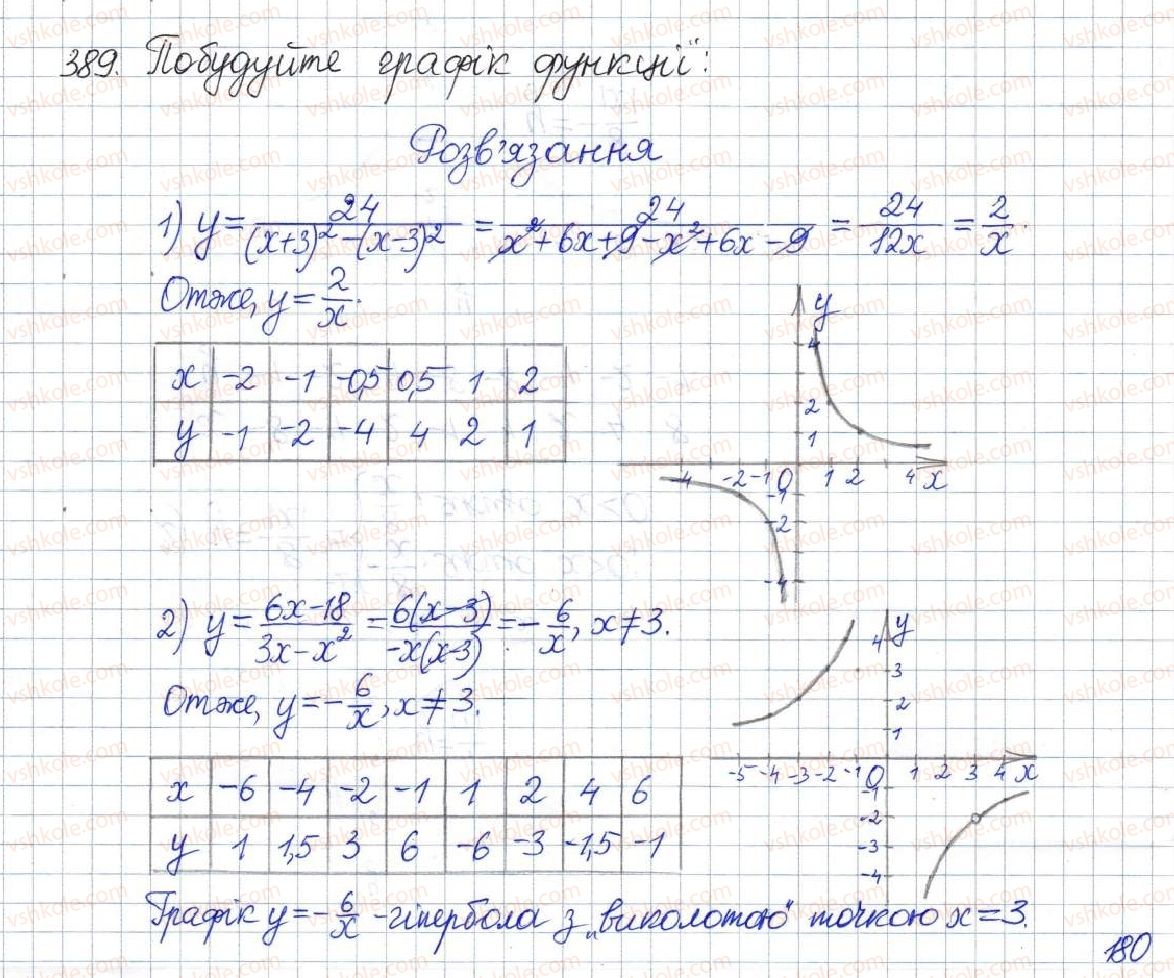 389. Побудуйте графік функції:
Розв'язання
1) y = 24/((x+3)² − (x−3)²) = 24/(x² + 6x + 9 − x² + 6x − 9) = 24/12x = 2/x.
Отже, y = 2/x.
x −2 −1 −0,5 0,5 1 2
y −1 −2 −4 4 2 1
y
4
2
1
−4 −2 −1 0 1 2 4 x
−1
−2
−4
2) y = (6x − 18)/(3x − x²) = 6(x − 3)/(−x(x−3)) = −6/x, x ≠ 3.
Отже, y = −6/x, x ≠ 3.
x −6 −4 −2 −1 1 2 4 6
y 1 1,5 3 6 −6 −3 −1,5 −1
y
4
3
2
1
−5 −4 −3 −2 −1 0 1 2 3 4 x
−1
−2
−3
−4
Графік y = −6/x - гіпербола з „виколотою" точкою x = 3.
180
vshkole.com